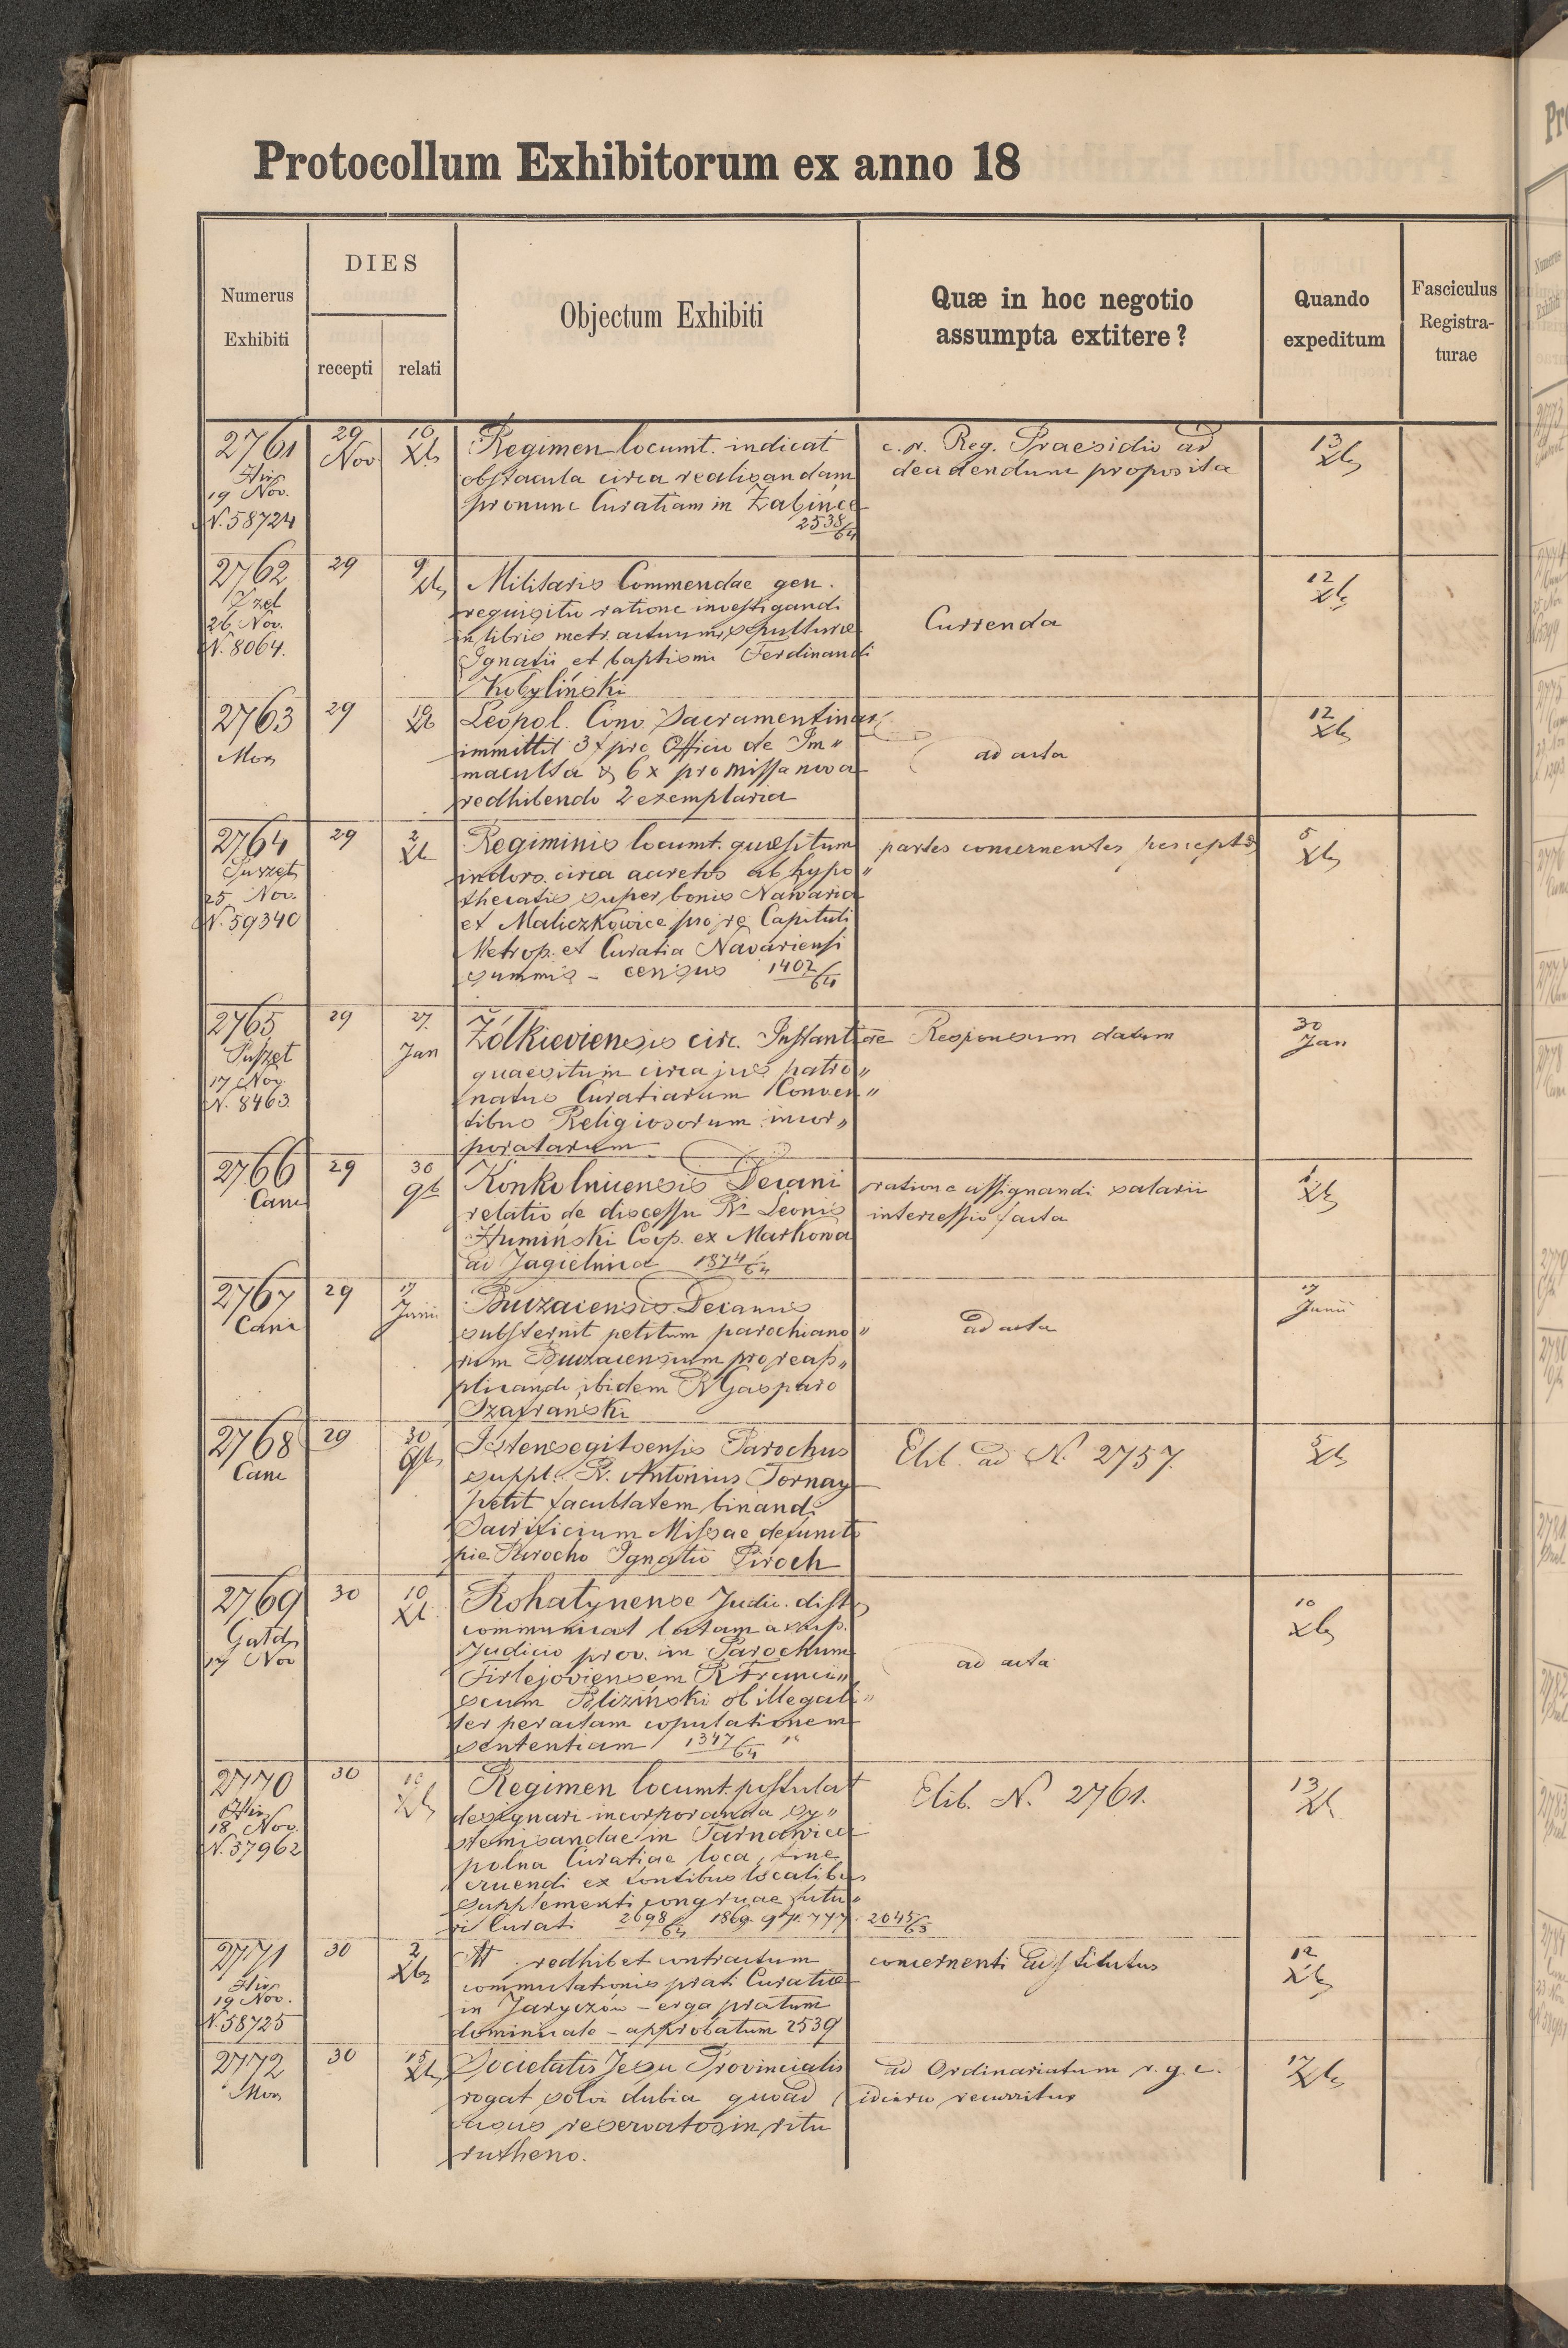 Protocollum Exhibitorum ex anno 18
Numerus Exhibiti
DIES
recepti relati
Objectum Exhibiti
Quæ in hoc negotio
assumpta extitere?
Quando
expeditum
Fasciculus
Registra-
turae
2761 29 Nov 10 Xb Regimen locumt. indicat c. r. Reg. Praesidio ad 13 Xb
obstacula circa realisandam proposita
19 Nov. pronunc Curatiam in Żabińce
N. 58724 2538/64
2762 29 9 Xb Militaris Commendae gen. 12 Xb
requisitu ratione investigandi
26 Nov. in libris metr. actuum sepulturae Currenda
N. 8064. Ignatii et baptismi Ferdinandi
Kobyliński
2763 29 10 Xb Leopol. Conv. Sacramentinar. 12 Xb
Mon immittit 3 f pro Officio de Im„ ad acta
maculata & 6 x pro missa nova
redhibendo 2 exemplaria
2764 29 2 Xb Regiminis locumt. quaesitum partes concernentes 5 Xb
indors. circa ab hypo„
25 Nov. thecatis super bonis Nawaria
N. 59340 et Maliczkowice pro re Capituli
Metrop. et Curatia Navariensi
summis - census 1402/64
2765 29 27. Jan Żółkieviensis circ. Instantiae Responsum datum 30 Jan
quaesitum circa jus patro„
17 Nov. natus Curatiarum Conven„
N. 8463. tibus Religiosorum incor„
poratarum
2766 29 30 9b Konkolnicensis Decani ratione assignandi salarii 1 Xb
relatio de discessu R. Leonis intercessio facta
Humiński Coop. ex Markowa
ad Jagielnica 1874/64
2767 29 17 Junii Buczacensis Decanus 17 Junii
substernit petitum parochiano„ ad acta
rum Buczacensium pro reap„
plicando ibidem R. Gasparo
Szafrański
2768 29 30 9b Istensegitsensis Parochus Elib. ad N. 2757. 5 Xb
suppl. R. Antonius Tornay
petit facultatem binandi
Sacrificium Missae defuncto
pie Parocho Ignatio Piroch
2769 30 10 Xb Rohatynense Judic. distr. 10 Xb
communicat latam a
17 Nov Judicio prov. in Parochum
Firlejoviensem R. Franci„ ad acta
scum ob illegali„
ter peractam copulationem
sententiam 1347/64
2770 30 10 Xb Regimen locumt. postulat Elib. N. 2761. 13 Xb
designari incorporanda sy„
18 Nov. stemisandae in Tarnawica
N. 57962 polna Curatiae loca, fine
eruendi ex fontibus localibus
supplementi congruae futu„
ri Curati 2698/64 2045/63
2771 30 2 Xb redhibet contractum concernenti 12 Xb
commutationis prati Curatiae
19 Nov. in Jaryczów - erga pratum
N. 58725 dominicale - approbatum 2539
2772 30 15 Xb Societatis Jesu Provincialis ad Ordinariatum r. g. c. 17 Xb
Mon rogat solvi dubia quoad recurritur
casus reservatos in ritu
rutheno.